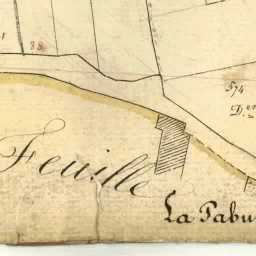 88
574
D.en
Feuille
La Tabu